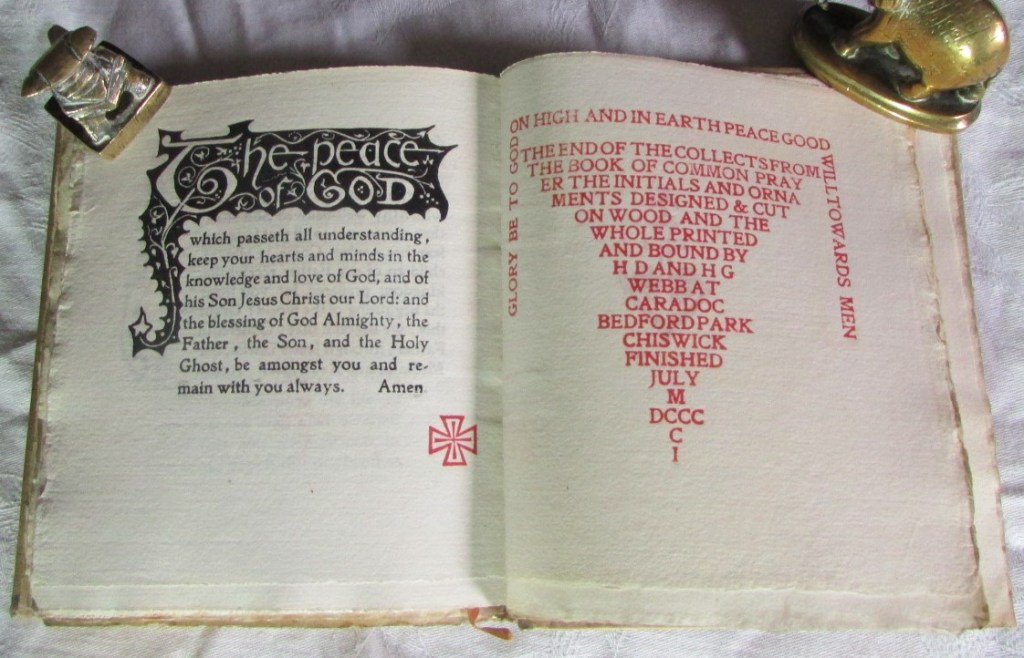 The peace
of GOD
which passeth all understanding,
keep your hearts and minds in the
knowledge and love of God, and of
his Son Jesus Christ our Lord: and
the blessing of God Almighty, the
Father, the Son, and the Holy
Ghost, be amongst you and re-
main with you always. Amen
GLORY BE TO GOD
ON HIGH AND IN EARTH PEACE GOOD
WILL TOWARDS MEN
THE END OF THE COLLECTS FROM
THE BOOK OF COMMON PRAY
ER THE INITIALS AND ORNA
MENTS DESIGNED & CUT
ON WOOD AND THE
WHOLE PRINTED
AND BOUND BY
H D AND H G
WEBB AT
CARADOC
BEDFORD PARK
CHISWICK
FINISHED
JULY
M
DCCC
C
I